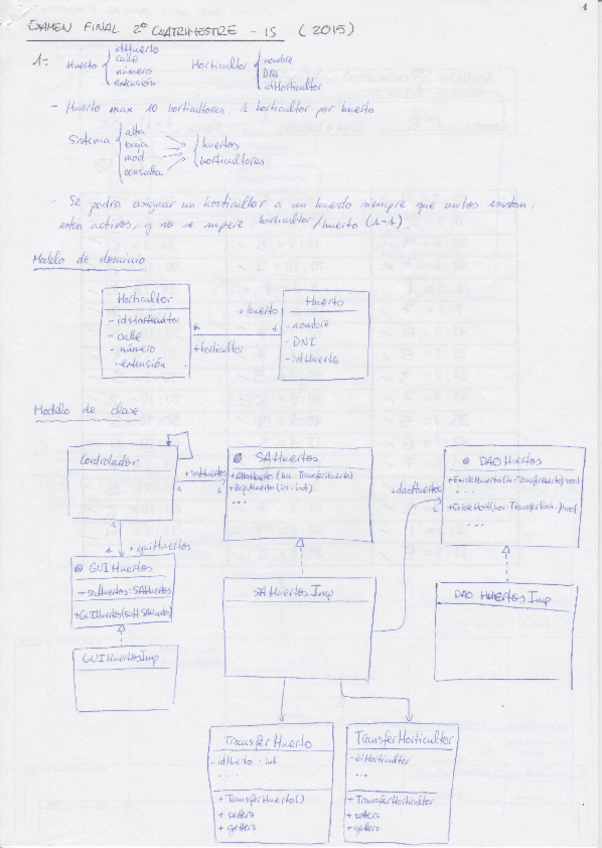 1
EXAMEN FINAL 2º CUATRIMESTRE - IS (2015)
1=
Huerto
idHuerto
calle
número
extensión
Horticultor
nombre
DNI
idHorticultor
- Huerto max 10 horticultores. 1 horticultor por huerto
Sistema
alta
baja
mod
consulta
huertos
horticultores
- Se podrá asignar un horticultor a un huerto siempre que ambos existan,
estén activos, y no se supere horticultor/huerto (1-1).
Modelo de dominio
Horticultor
- idHorticultor
- calle
- número
- extensión
+huerto
1
+horticultor
Huerto
- nombre
- DNI
- idHuerto
Modelo de clase
Controlador
+saHuertos
1
1
SAHuertos
(tra: TransferHuerto)
(id: int)
...
+daoHuertos
1
DAOHuertos
...
...
1
1
+guiHuertos
GUIHuertos
- saHuertos: SAHuertos
+GUIHuertos(saH:SAHuertos)
SAHuertosImp
DAO HuertosImp
GUIHuertosImp
TransferHuerto
- idHuerto: int
...
+ TransferHuerto()
+ setters
+ getters
TransferHorticultor
- idHorticultor
...
+ TransferHorticultor
+ setters
+ getters